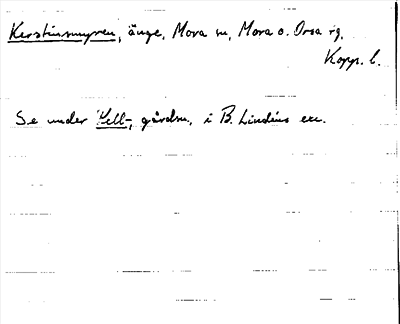 Kerstinsmyren, änge, Mora sn, Mora o. Orsa tg,
Kopp. l.
Se under Kell-, gårdsn, i B. Lindéns exc.